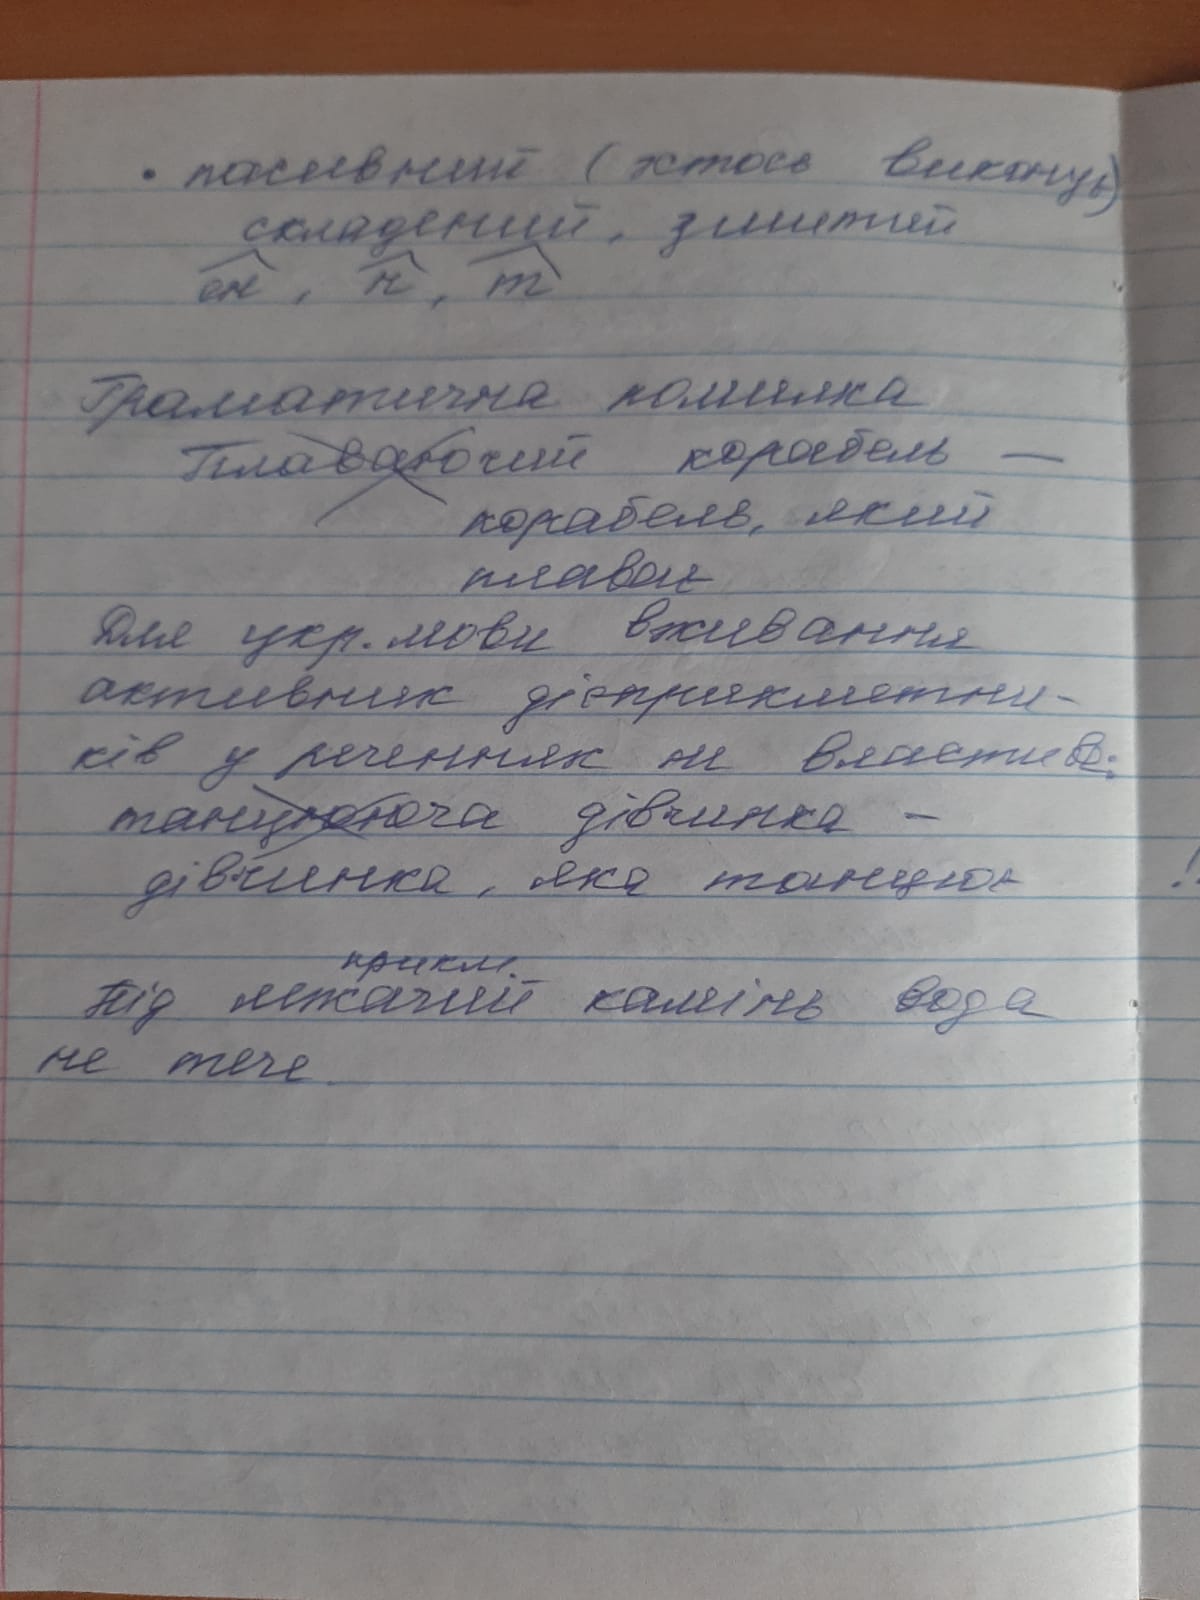 • пасивний (хтось виконує)
складений, зшитий
ен, н, т
Граматична помилка
Плаваючий корабель —
корабель, який
плаває
Для укр. мови вживання
активних дієприкметни-
ків у реченнях не властиве:
танцююча дівчинка –
дівчинка, яка танцює
прикм.
Під лежачий камінь вода
не тече.